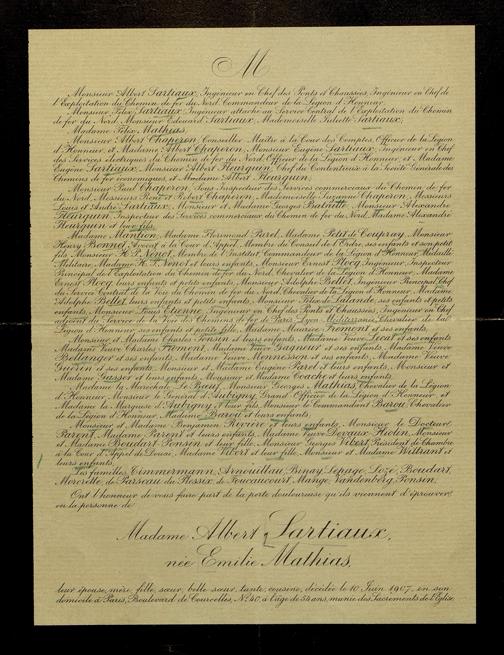 M
Monsieur Albert Sartiaux, Ingénieur en Chef des Ponts et Chaussées, Ingénieur en Chef de
l'Exploitation du Chemin de fer du Nord, Commandeur de la Légion d'Honneur,
Monsieur Félix Sartiaux, Ingénieur attaché au Service Central de l'Exploitation du Chemin
de fer du Nord, Monsieur Edouard Sartiaux, Mademoiselle Juliette Sartiaux,
Madame Félix Mathias,
Monsieur Albert Chaperon, Conseiller Maître à la Cour des Comptes, Officier de la Légion
d'Honneur, et Madame Albert Chaperon, Monsieur Eugène Sartiaux, Ingénieur en Chef
des Services électriques du Chemin de fer du Nord, Officier de la Légion d'Honneur, et Madame
Eugène Sartiaux, Monsieur Albert Heurguin, Chef du Contentieux à la Société Générale des
Chemins de fer économiques, et Madame Albert Heurguin,
Monsieur Paul Chaperon, Sous Inspecteur des Services commerciaux du Chemin de fer
du Nord, Messieurs René et Robert Chaperon, Mademoiselle Suzanne Chaperon, Messieurs
Louis et André Sartiaux, Monsieur et Madame Georges Balsotte, Monsieur Alexandre
Heurguin, Inspecteur des Services commerciaux du Chemin de fer du Nord, Madame Alexandre
Heurguin et leur fils,
Madame Mantion, Madame Florimond Parel, Madame Petit de Coupray, Monsieur
Henry Bonnet, Avocat à la Cour d'Appel, Membre du Conseil de l'Ordre, ses enfants et son petit
fils, Monsieur H. P. Nénot, Membre de l'Institut, Commandeur de la Légion d'Honneur, Médaillé
Militaire, Madame H. P. Nénot et leurs enfants, Monsieur Ernest Flocq, Ingénieur, Inspecteur
Principal de l'Exploitation du Chemin de fer du Nord, Chevalier de la Légion d'Honneur, Madame
Ernest Flocq, leurs enfants et petits enfants, Monsieur Adolphe Bellet, Ingénieur Principal, Chef
du Service Central de la Voie du Chemin de fer du Nord, Chevalier de la Légion d'Honneur, Madame
Adolphe Bellet, leurs enfants et petits enfants, Monsieur Félix de Lalande, ses enfants et petits
enfants, Monsieur Louis Etienne, Ingénieur en Chef des Ponts et Chaussées, Ingénieur en Chef
adjoint du Service de la Voie des Chemins de fer de Paris Lyon Méditerranée, Chevalier de la
Légion d'Honneur, ses enfants et petite fille, Madame Maurice Fremont et ses enfants,
Monsieur et Madame Charles Ponsin et leurs enfants, Madame Veuve Lecat et ses enfants
Madame Veuve Charles Fremont, Madame Veuve Gagneur et ses enfants, Madame Veuve
Bellanger et ses enfants, Madame Veuve Mennesson et ses enfants, Madame Veuve
Guérin et ses enfants, Monsieur et Madame Eugène Parel et leurs enfants, Monsieur et
Madame Gasser et leurs enfants, Monsieur et Madame Coache et leurs enfants,
Madame la Maréchale Le Bœuf, Monsieur Georges Mathias, Chevalier de la Légion
d'Honneur, Monsieur le Général d'Aubigny, Grand Officier de la Légion d'Honneur, et
Madame la Marquise d'Aubigny et leur fils, Monsieur le Commandant Barou, Chevalier
de la Légion d'Honneur, Madame Barou et leurs enfants,
Monsieur et Madame Benjamin Rivière et leurs enfants, Monsieur le Docteur
Parent, Madame Parent et leurs enfants, Madame Veuve Devaux Hiolin, Monsieur
et Madame Boudart Ponsin et leur fille, Monsieur Georges Vibert, Président de Chambre
à la Cour d'Appel de Douai, Madame Vibert et leur fille, Monsieur et Madame Wiltrant et
leurs enfants,
Les familles Timmermann, Arnouillau, Binay, Lepage, Lozé, Boudart,
Morcrette, de Parseau du Plessix, de Foucaucourt, Mange, Vandenberg, Ponsin,
Ont l'honneur de vous faire part de la perte douloureuse qu'ils viennent d'éprouver
en la personne de
Madame Albert Sartiaux,
née Emilie Mathias,
leur épouse, mère, fille, sœur, belle sœur, tante, cousine, décédée le 10 Juin 1907, en son
domicile à Paris, Boulevard de Courcelles, No 40, à l'âge de 54 ans, munie des Sacrements de l'Eglise.